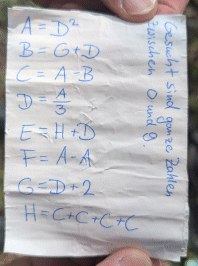 A = D²
B = G + D
C = A - B
D = A/3
E = H + D
F = A - A
G = D + 2
H = C + C + C + C
Gesucht sind ganze Zahlen
zwischen 0 und 9.